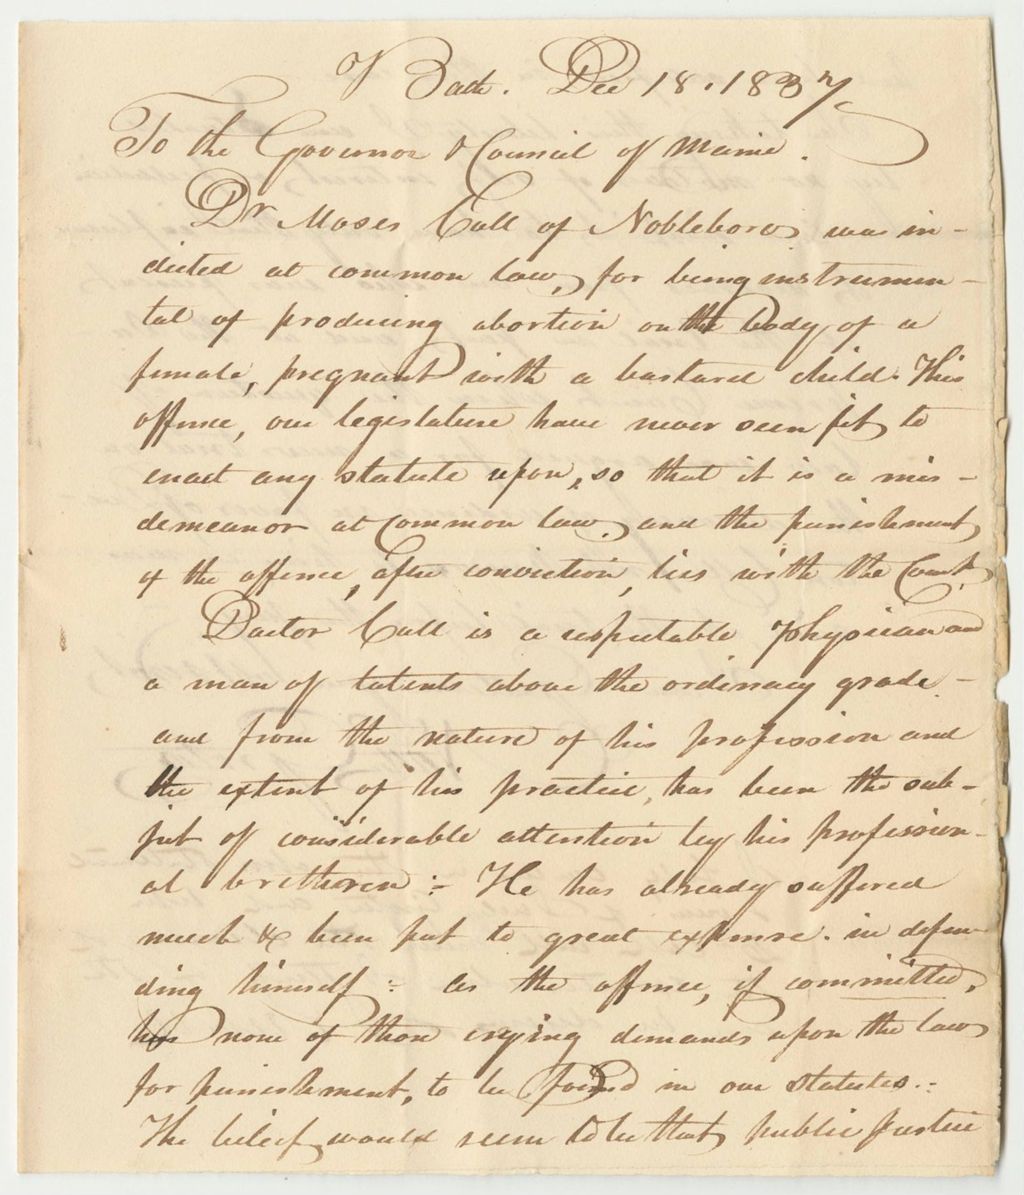 Bath. Dec 18. 1837.
To the Governor & Council of Maine.
Dr Moses Call of Nobleboro was in-
dicted at common law, for being instrumen-
tal of producing abortion on the body of a
female, pregnant with a bastard child. This
offence, our legislature have never seen fit to
enact any statute upon, so that it is a mis-
demeanor at Common law, and the punishment
of the offence, after conviction, lies with the Court.
Doctor Call is a respectable Physician and
a man of talents above the ordinary grade -
and from the nature of his profession and
the extent of his practice, has been the sub-
ject of considerable attention by his profession-
al brethoren :- He has already suffered
much & been put to great expense. in defen-
ding himself :- As the offence, if committed,
has none of those crying demands upon the law
for punishment, to be found in our statutes.:-
The belief would seem to be that public justice